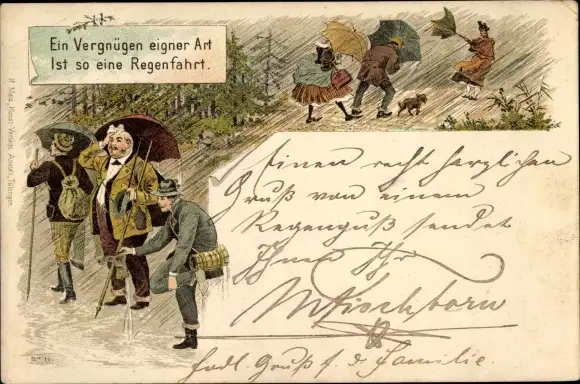 Ein Vergnügen eigner Art
Ist so eine Regenfahrt.
H. Metz, Kunst-Verlags-Anstalt, Tübingen.
Einen recht herzlichen
Gruß von einem
Regenguß sendet
Ihnen Ihr
M Fischborn
Frdl. Gruß f. d. Familie.